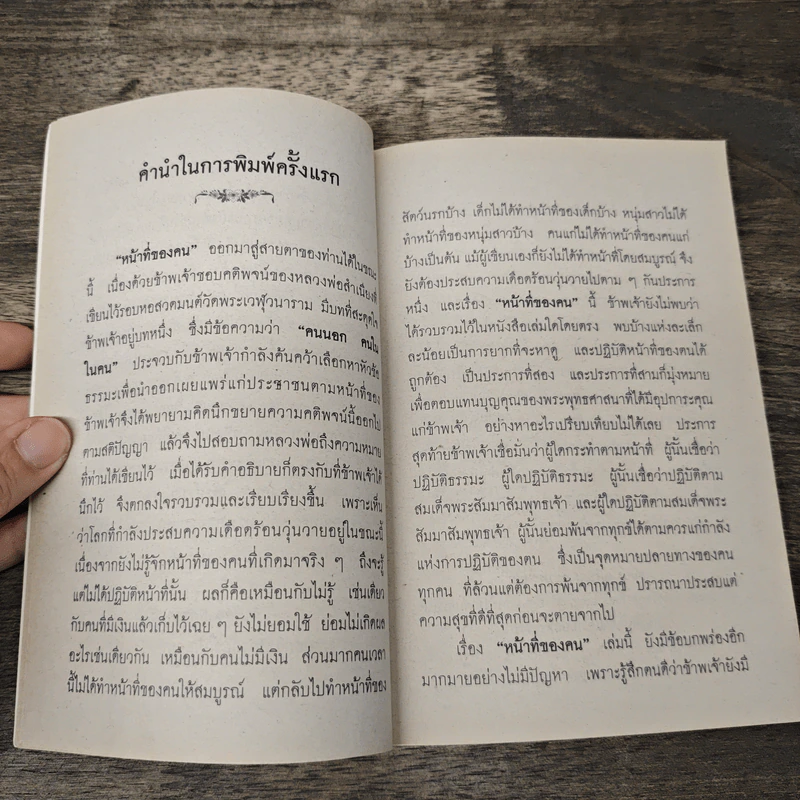 คำนำในการพิมพ์ครั้งแรก
“หน้าที่ของคน” ออกมาสู่สายตาของท่านได้ในขณะ
นี้ เนื่องด้วยข้าพเจ้าชอบคติพจน์ของหลวงพ่อสำเนียงที่
เขียนไว้รอบหอสวดมนต์วัดพระเวฬุวนาราม มีบทที่สะดุดใจ
ข้าพเจ้าอยู่บทหนึ่ง ซึ่งมีข้อความว่า “คนนอก คนใน
ในคน” ประจวบกับข้าพเจ้ากำลังค้นคว้าเลือกหาหัวข้อ
ธรรมะเพื่อนำออกเผยแพร่แก่ประชาชนตามหน้าที่ของ
ข้าพเจ้าจึงได้พยายามคิดนึกขยายความคติพจน์นี้ออกไป
ตามสติปัญญา แล้วจึงไปสอบถามหลวงพ่อถึงความหมาย
ที่ท่านได้เขียนไว้ เมื่อได้รับคำอธิบายก็ตรงกับที่ข้าพเจ้าได้
นึกไว้ จึงตกลงใจรวบรวมและเรียบเรียงขึ้น เพราะเห็น
ว่าโลกที่กำลังประสบความเดือดร้อนวุ่นวายอยู่ในขณะนี้
เนื่องจากยังไม่รู้จักหน้าที่ของคนที่เกิดมาจริง ๆ ถึงจะรู้
แต่ไม่ได้ปฏิบัติหน้าที่นั้น ผลก็คือเหมือนกับไม่รู้ เช่นเดียว
กับคนที่มีเงินแล้วเก็บไว้เฉย ๆ ยังไม่ยอมใช้ ย่อมไม่เกิดผล
อะไรเช่นเดียวกัน เหมือนกับคนไม่มีเงิน ส่วนมากคนเวลา
นี้ไม่ได้ทำหน้าที่ของคนให้สมบูรณ์ แต่กลับไปทำหน้าที่ของ
สัตว์นรกบ้าง เด็กไม่ได้ทำหน้าที่ของเด็กบ้าง หนุ่มสาวไม่ได้
ทำหน้าที่ของหนุ่มสาวบ้าง คนแก่ไม่ได้ทำหน้าที่ของคนแก่
บ้างเป็นต้น แม้ผู้เขียนเองก็ยังไม่ได้ทำหน้าที่โดยสมบูรณ์ จึง
ยังต้องประสบความเดือดร้อนวุ่นวายไปตาม ๆ กันประการ
หนึ่ง และเรื่อง “หน้าที่ของคน” นี้ ข้าพเจ้ายังไม่พบว่า
ได้รวบรวมไว้ในหนังสือเล่มใดโดยตรง พบบ้างแห่งละเล็ก
ละน้อยเป็นการยากที่จะหาดู และปฏิบัติหน้าที่ของตนได้
ถูกต้อง เป็นประการที่สอง และประการที่สามก็มุ่งหมาย
เพื่อตอบแทนบุญคุณของพระพุทธศาสนาที่ได้มีอุปการะคุณ
แก่ข้าพเจ้า อย่างหาอะไรเปรียบเทียบไม่ได้เลย ประการ
สุดท้ายข้าพเจ้าเชื่อมั่นว่าผู้ใดกระทำตามหน้าที่ ผู้นั้นเชื่อว่า
ปฏิบัติธรรมะ ผู้ใดปฏิบัติธรรมะ ผู้นั้นเชื่อว่าปฏิบัติตาม
สมเด็จพระสัมมาสัมพุทธเจ้า และผู้ใดปฏิบัติตามสมเด็จพระ
สัมมาสัมพุทธเจ้า ผู้นั้นย่อมพ้นจากทุกข์ได้ตามควรแก่กำลัง
แห่งการปฏิบัติของตน ซึ่งเป็นจุดหมายปลายทางของคน
ทุกคน ที่ล้วนแต่ต้องการพ้นจากทุกข์ ปรารถนาประสบแต่
ความสุขที่ดีที่สุดก่อนจะตายจากไป
เรื่อง “หน้าที่ของคน” เล่มนี้ ยังมีข้อบกพร่องอีก
มากมายอย่างไม่มีปัญหา เพราะรู้สึกตนดีว่าข้าพเจ้ายังมี